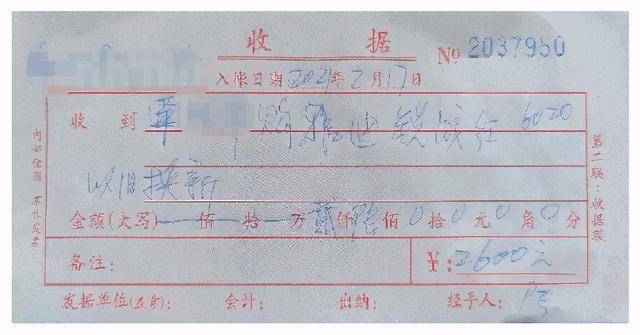 收 据
№ 2037950
入账日期 2021年 2月17日
收 到 雅迪锐战红 6020
以旧换新
金额(大写) 佰 拾 万 贰仟陆佰0拾0元0角0分
备注: ¥:2600元
发据单位(盖章): 会计: 出纳: 经手人:
第二联:收据联
内部使用 不作发票